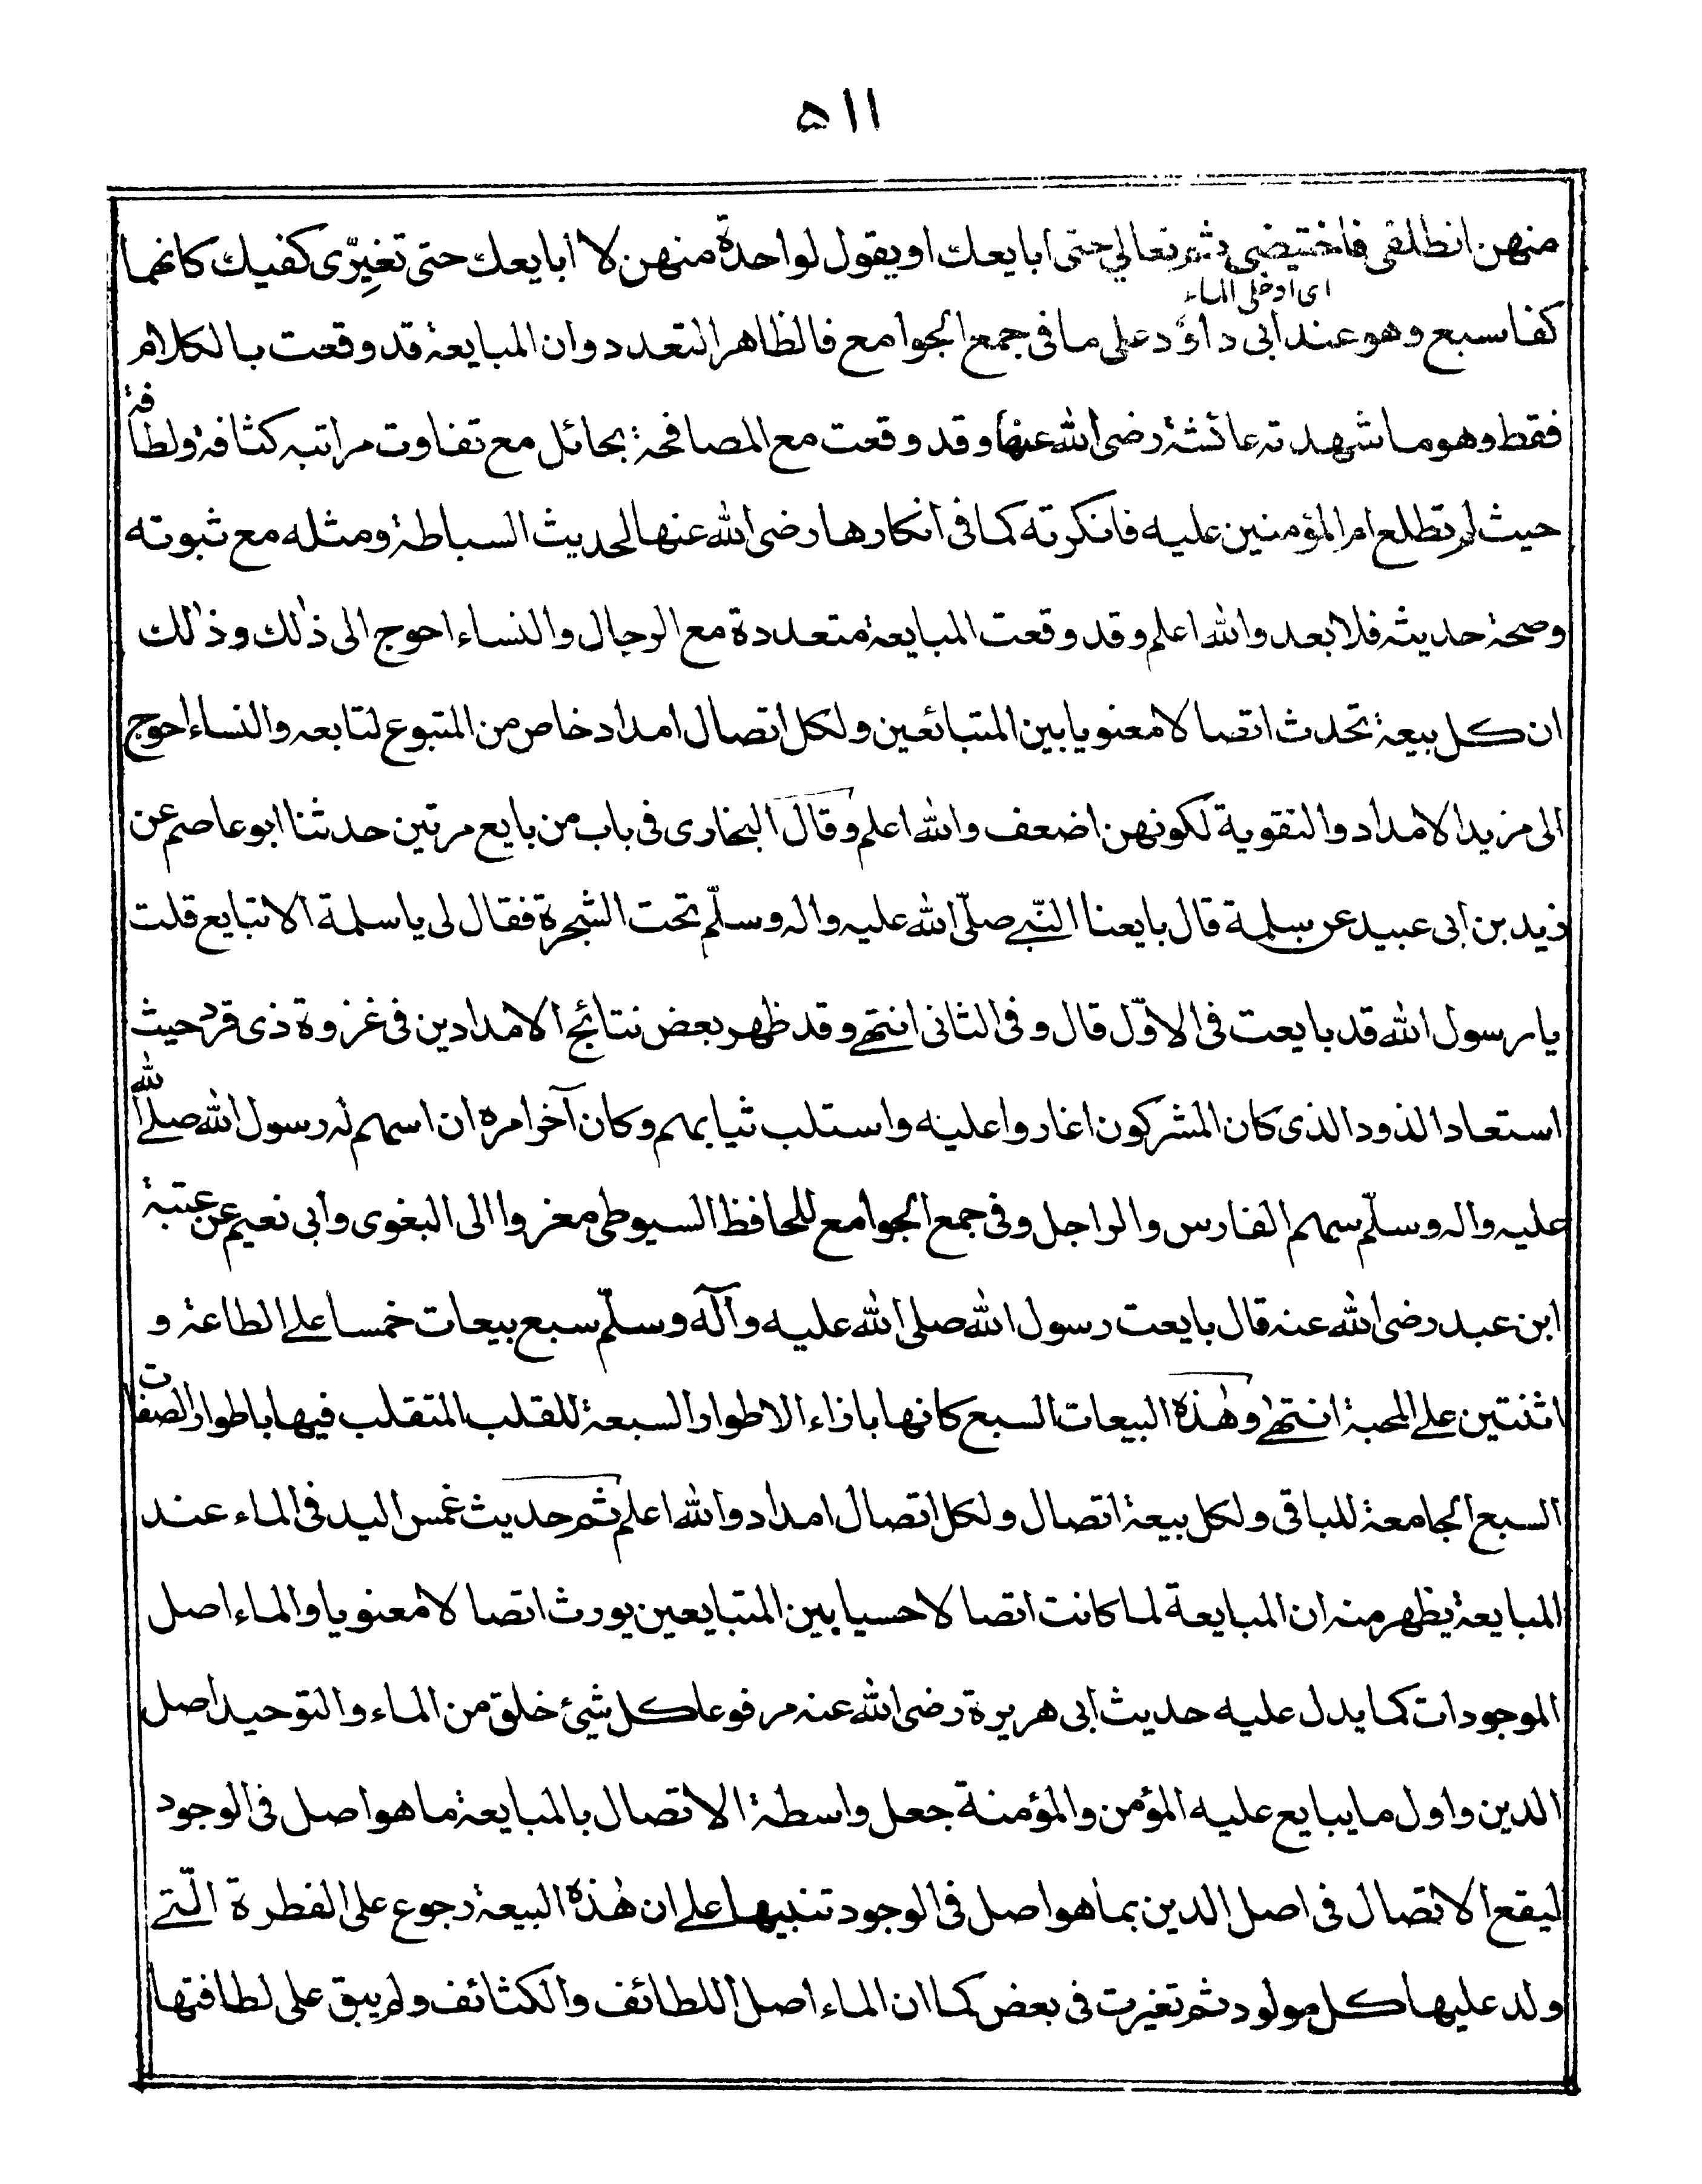 ٥١١
منهن انطلقى فاختيضى ثم تعالي حتى ابايعك او يقول لواحدة منهن لا ابايعك حتى تغيّرى كفيك كانهما
اى ادخلى الماء
كفا سبع وهو عند ابى داؤد على ما فى جمع الجوامع فالظاهر التعدد وان المبايعة قد وقعت بالكلام
فقط وهو ما شهدته عائشة رضى الله عنها وقد وقعت مع المصافحة بحائل مع تفاوت مراتبه كثافة ولطافة
حيث لم تطلع ام المؤمنين عليه فانكرته كما فى انكارها رضى الله عنها لحديث السباطة ومثله مع ثبوته
وصحة حديثه فلا بعد والله اعلم وقد وقعت المبايعة متعددة مع الرجال والنساء احوج الى ذٰلك وذٰلك
ان كل بيعة تحدث اتصالا معنويا بين المتبائعين ولكل اتصال امداد خاص من المتبوع لتابعه والنساء احوج
الى مزيد الامداد والتقوية لكونهن اضعف والله اعلم وقال البخارى فى باب من بايع مرتين حدثنا ابو عاصم عن
زيد بن ابى عبيد عن سلمة قال بايعنا النّبے صلّى الله عليه واله وسلّم تحت الشجرة فقال لى يا سلمة الا تبايع قلت
يا رسول الله قد بايعت فى الاوّل قال وفى الثانى انتهے وقد ظهر بعض نتائج الامدادين فى غزوة ذى قرد حيث
استعاد الذود الذى كان المشركون اغاروا عليه واستلب ثيابهم وكان آخر امره ان اسهم له رسول الله صلے الله
عليه واله وسلّم سهم الفارس والراجل وفى جمع الجوامع للحافظ السيوطى معزوا الى البغوى وابى نعيم عن عتبة
ابن عبد رضى الله عنه قال بايعت رسول الله صلى الله عليه وآله وسلّم سبع بيعات خمسا علے الطاعة و
اثنتين علے المحبة انتهے وهٰذه البيعات السبع كانها بازاء الاطوار السبعة للقلب المتقلب فيها باطوار الصفات
السبع الجامعة للباقى ولكل بيعة اتصال ولكل اتصال امداد والله اعلم ثم حديث غمس اليد فى الماء عند
المبايعة يظهر منه ان المبايعة لما كانت اتصالا حسيا بين المتبايعين يورث اتصالا معنويا والماء اصل
الموجودات كما يدل عليه حديث ابى هريرة رضى الله عنه مرفوعا كل شئ خلق من الماء والتوحيد اصل
الدين واول ما يبايع عليه المؤمن والمؤمنة جعل واسطة الاتصال بالمبايعة ما هو اصل فى الوجود
ليقع الاتصال فى اصل الدين بما هو اصل فى الوجود تنبيها علے ان هٰذه البيعة رجوع على الفطرة الّتے
ولد عليها كل مولود ثم تغيرت فى بعض كما ان الماء اصل اللطائف والكثائف ولم يبق على لطافتها